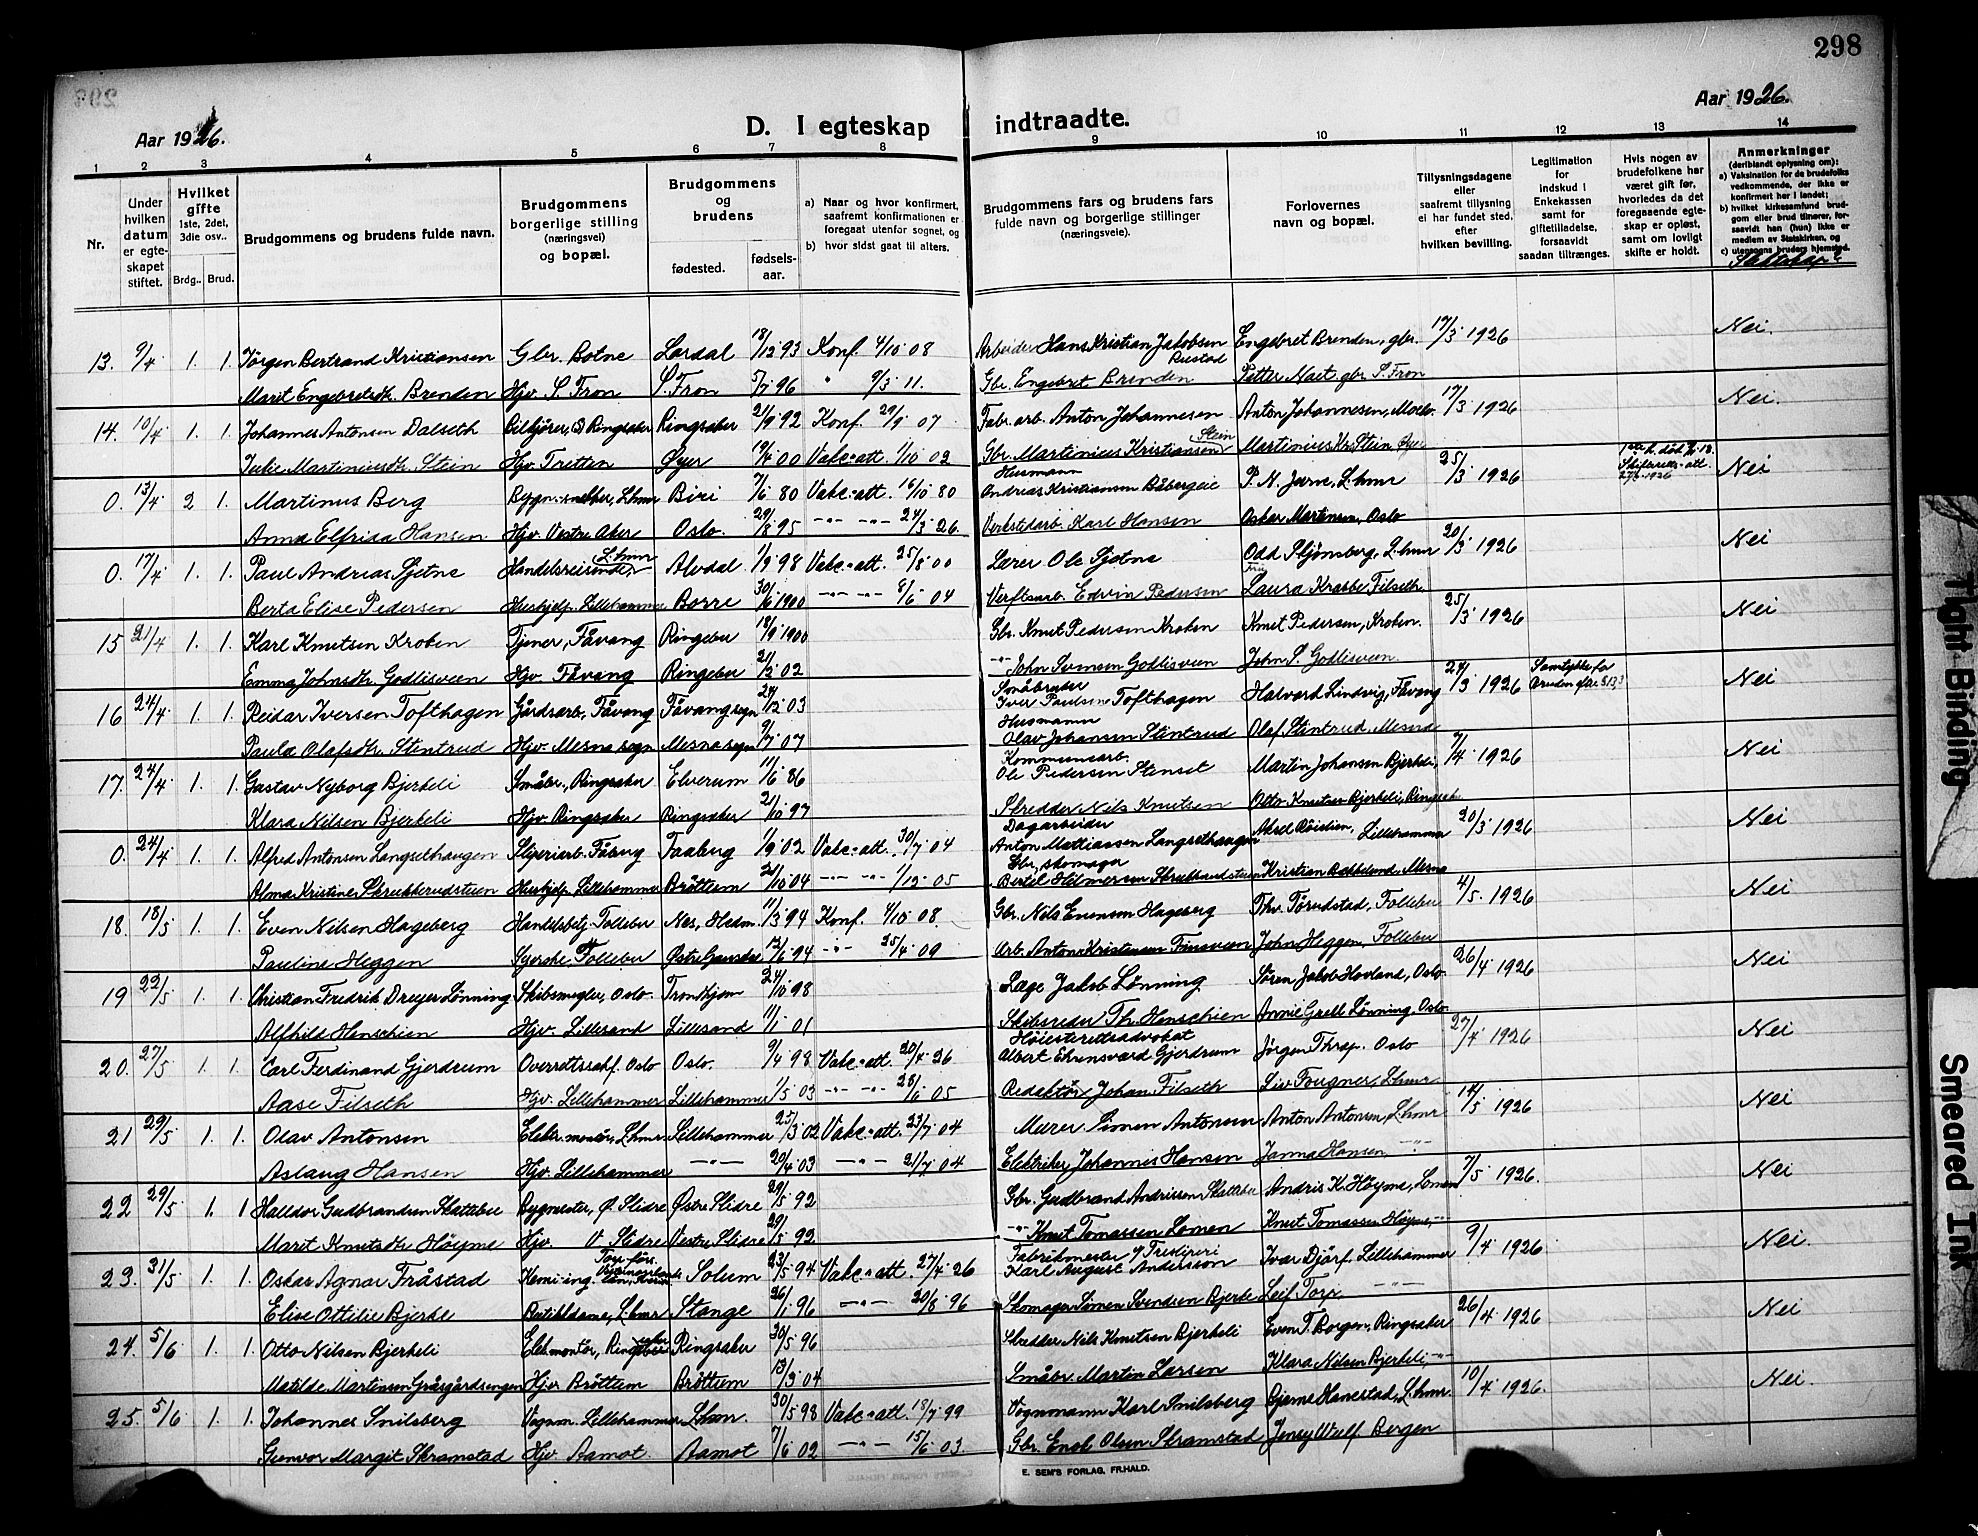 298
Aar 1926.
D. I egteskap indtraadte.
Aar 1926.
1 2 3 4 5 6 7 8 9 10 11 12 13 14
Nr.
Under hvilken datum er egteskapet stiftet.
Hvilket gifte 1ste, 2det, 3die osv..
Brdg.. Brud.
Brudgommens og brudens fulde navn.
Brudgommens borgerlige stilling (næringsvei) og bopæl.
Brudgommens og brudens
fødested. fødselsaar.
a) Naar og hvor konfirmert, saafremt konfirmationen er foregaat utenfor sognet, og
b) hvor sidst gaat til alters.
Brudgommens fars og brudens fars fulde navn og borgerlige stillinger (næringsveie).
Forlovernes navn og bopæl.
Tillysningsdagene eller saafremt tillysning ei har fundet sted, efter hvilken bevilling.
Legitimation for indskud i Enkekassen samt for giftetilladelse, forsaavidt saadan tiltrænges.
Hvis nogen av brudefolkene har været gift før, hvorledes da det foregaaende egteskap er opløst, samt om lovligt skifte er holdt.
Anmerkninger (deriblandt oplysning om):
a) Vaksination for de brudefolks vedkommende, der ikke er konfirmert her i landet;
b) hvilket kirkesamfund brudgom eller brud tilhører, forsaavidt han (hun) ikke er medlem av Statskirken, og
c) utensogns bruders hjemsted.
13. 9/4 1. 1. Jørgen Bertrand Kristiansen Gbr. Botne Lardal 18/12 93 Konf. 4/10 08 Arbeider Hans Kristian Jakobsen Rustad Engebret Brenden, gbr. 17/3 1926 Nei.
Marit Engebretsdtr. Brenden Hjv. S. Fron S. Fron 5/7 96 " 9/3 11. Gbr. Engebret Brenden Petter Naet gbr S. Fron
14. 10/4 1. 1. Johannes Antonsen Dalseth Bilkjører, Ringsaker Ringsaker 21/9 92 Konf. 29/9 07 Fabr. arb. Anton Johannesen Anton Johannesen, Moelv. 17/3 1926 Nei.
Julie Martiniusdtr. Stein Hjv. Tretten Øyer 19/4 00 Vakc. att. 1/10 02 Gbr. Martinius Kristiansen Stein Martinius Kr. Stein, Øyer
0. 13/4 2 1. Martinus Berg Bygn.snekker, Lhmr Biri 7/6 80 Vakc. att. 16/10 80 Husmann Andreas Kristiansen Båbergeie P. N. Jarne, Lhmr 25/3 1926 27/3 1926 Nei
Anna Elfrida Hansen Hjv. Vestre Aker Oslo. 29/8 95 -"- -"- 24/3 26. Verkstedarb. Karl Hansen Oskar Martinsen, Oslo
0. 17/4 1. 1. Paul Andreas Sjetne Handelsreisende, Lhmr Alvdal 1/2 98 Vakc. att. 25/8 00 Lærer Ole Sjetne Odd Skjønsberg, Lhmr 20/3 1926 Nei
Berta Elise Pedersen Hushjelp, Lillehammer Borre 30/6 1900 -"- -"- 8/6 04 Verftsarb. Edvin Pedersen Fru Laura Krabbe Filseth
15 21/4 1. 1. Karl Knutsen Kroken Tjener, Fåvang Ringebu 18/9 1900 Gbr. Knut Pedersen Kroken Knut Pedersen, Kroken. 25/3 1926 Nei
Emma Johnsdtr. Godlisveen Hjv. Fåvang Ringebu 21/2 02 -"- John Svensen Godlisveen John S. Godlisveen
16 24/4 1. 1. Reidar Iversen Tofthagen Gårdsarb, Fåvang Fåvang sogn 24/12 03 Småbruker Iver Paulsen Tofthagen Halvard Lindvig, Fåvang 24/3 1926 Samtykke for bruden efter § 13, 3 Nei
Paula Olafsdtr. Stintrud Hjv. Mesna sogn Mesna sogn 9/7 07 Husmann Olav Johansen Stintrud Olaf Stintrud, Mesna
17. 24/4 1. 1. Gustav Nyborg Bjerkeli Småbr., Ringsaker Elverum 11/6 86 Kommunearb. Ole Pedersen Stenset Martin Johansen Bjerkeli, 7/4 1926 Nei
Klara Nilsen Bjerkeli Hjv. Ringsaker Ringsaker 21/10 97 Skredder Nils Knutsen Otto Knutsen Bjerkeli, Ringsak.
0. 24/4 1. 1. Alfred Antonsen Langselhaugen Sliperiarb. Fåberg Faaberg 1/9 02 Vakc. att. 30/7 04 Dagarbeider Anton Mathiassen Langselhaugen Aksel Röislien, Lillehammer 20/3 1926 Nei
Alma Kristine Skrukkerudstuen Hushjelp, Lillehammer Bröttum 21/10 04 -"- -"- 1/12 05 Gbr, skomager Bertil Hilmersen Skrukkerudstuen Kristian Bakkelund, Mesna
18. 18/5 1. 1. Even Nilsen Hageberg Handelsbetj. Follebu Nes, Hedm. 11/3 94 Konf. 4/10 08. Gbr. Nils Evensen Hageberg Thv. Törudstad, Follebu 4/5. 1926 Nei
Pauline Heggen Syerske, Follebu Østre Gausdal 12/6 94 -"- 25/4 09 Arb. Anton Kristiansen John Heggen, Follebu
19 22/5 1. 1. Christian Fredrik Dreyer Lønning Skibsmegler, Oslo. Trondhjem 24/10 98 Læge Jakob Lønning Sören Jakob Hovland, Oslo 26/4 1926 Nei
Alfhild Henschien Hjv. Lillesand Lillesand 11/1 01 Skibsreder Th. Henschien Annie Grell Lønning, Oslo
20. 27/5 1. 1. Carl Ferdinand Gjerdrum Overrettssakf. Oslo Oslo. 9/4 98 Vakc. att. 20/4 26 Høiesterettsadvokat Albert Ehrensvärd Gjerdrum Jørgen Thrap. Oslo 27/4 1926 Nei
Aase Filseth Hjv. Lillehammer Lillehammer 1/5 03 -"- -"- 28/6 05 Redaktör Johan Filseth Liv Fougner, Lhmr.
21 29/5 1. 1. Olav Antonsen Elektr. montör, Lhmr. Lillehammer 25/3 02 Vakc. att. 23/7 04 Murer Simen Antonsen Anton Antonsen, Lhmr 14/5 1926 Nei
Aslaug Hansen Hjv. Lillehammer -"- 20/4 03 -"- 21/7 04 Elektriker Johannes Hansen Janna Hansen, -"-
22 29/5 1. 1 Halldor Gudbrandsen Skattebu Bygmester, Ø. Slidre Østre Slidre 29/5 92 Gbr. Gudbrand Andrissen Skattebu Andris K. Höyne, Lomen 7/5 1926. Nei
Marit Knutsdtr Höyne Hjv. V. Slidre Vestre Slidre 29/5 92 -"- Knut Tomassen Lomen Knut Tomassen Höyne, -"-
23. 31/5 1. 1. Oskar Agnar Fråstad Kemi-ing. Solum 23/5 94 Vakc. att. 27/4 26 Fabrikmester Karl August Andersson Ivar Djörf, Lillehammer 9/4 1926 Nei.
Elise Ottilie Bjerke Butikkdame, Lhmr Stange 26/1 96 -"- 20/8 96 Skomager Simen Svendsen Bjerke Leif Torp -"-
24. 5/6 1. 1. Otto Nilsen Bjerkeli El.k montör, Ringsaker Ringsaker 30/5 96 Skredder Nils Knutsen Bjerkeli Even T. Borgen, Ringsaker 26/4 1926 Nei
Matilde Martinsen Gråsgårdsengen Hjv Bröttum Bröttum 13/3 04 Småbr. Martin Larsen Klara Nilsen Bjerkeli, -"-
25. 5/6 1. 1. Johannes Snilsberg Vognm. Lillehammer Lhmr. 30/5 98 Vakc. att. 18/7 99 Vognmann Karl Snilsberg Bjarne Hanestad, Lhmr. 10/4 1926. Nei.
Gunvor Margit Skramstad Hjv. Aamot Aamot 7/6 02 -"- 15/6 03. Gbr. Enok Olsen Skramstad Jensy Wulf Bergen
E. SEM'S FORLAG, FR.HALD.
Tight Binding
Smeared Ink